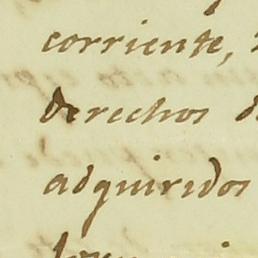 corriente,
derechos
adquiridos